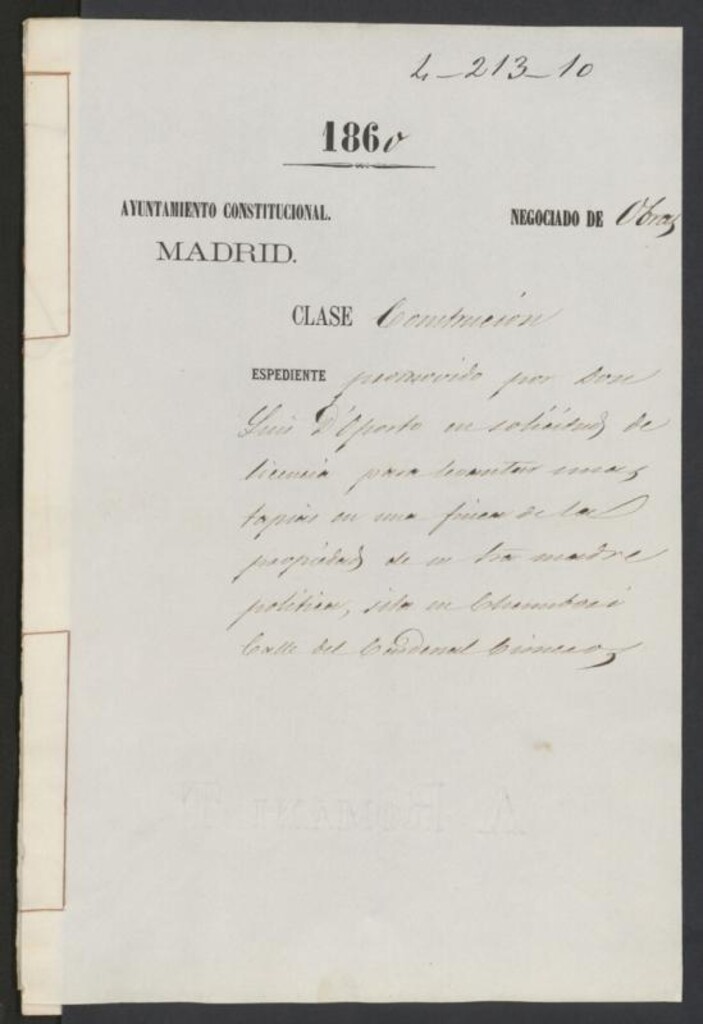 4-213-10
1860
AYUNTAMIENTO CONSTITUCIONAL.
NEGOCIADO DE Obras
MADRID.
CLASE Construcion
ESPEDIENTE promovido por Don
Luis D'Oporto en solicitud de
licencia para levantar unas
tapias en una finca de la
propiedad de su Sra madre
politica, sita en Chamberi
Calle del Cardenal Cisneros